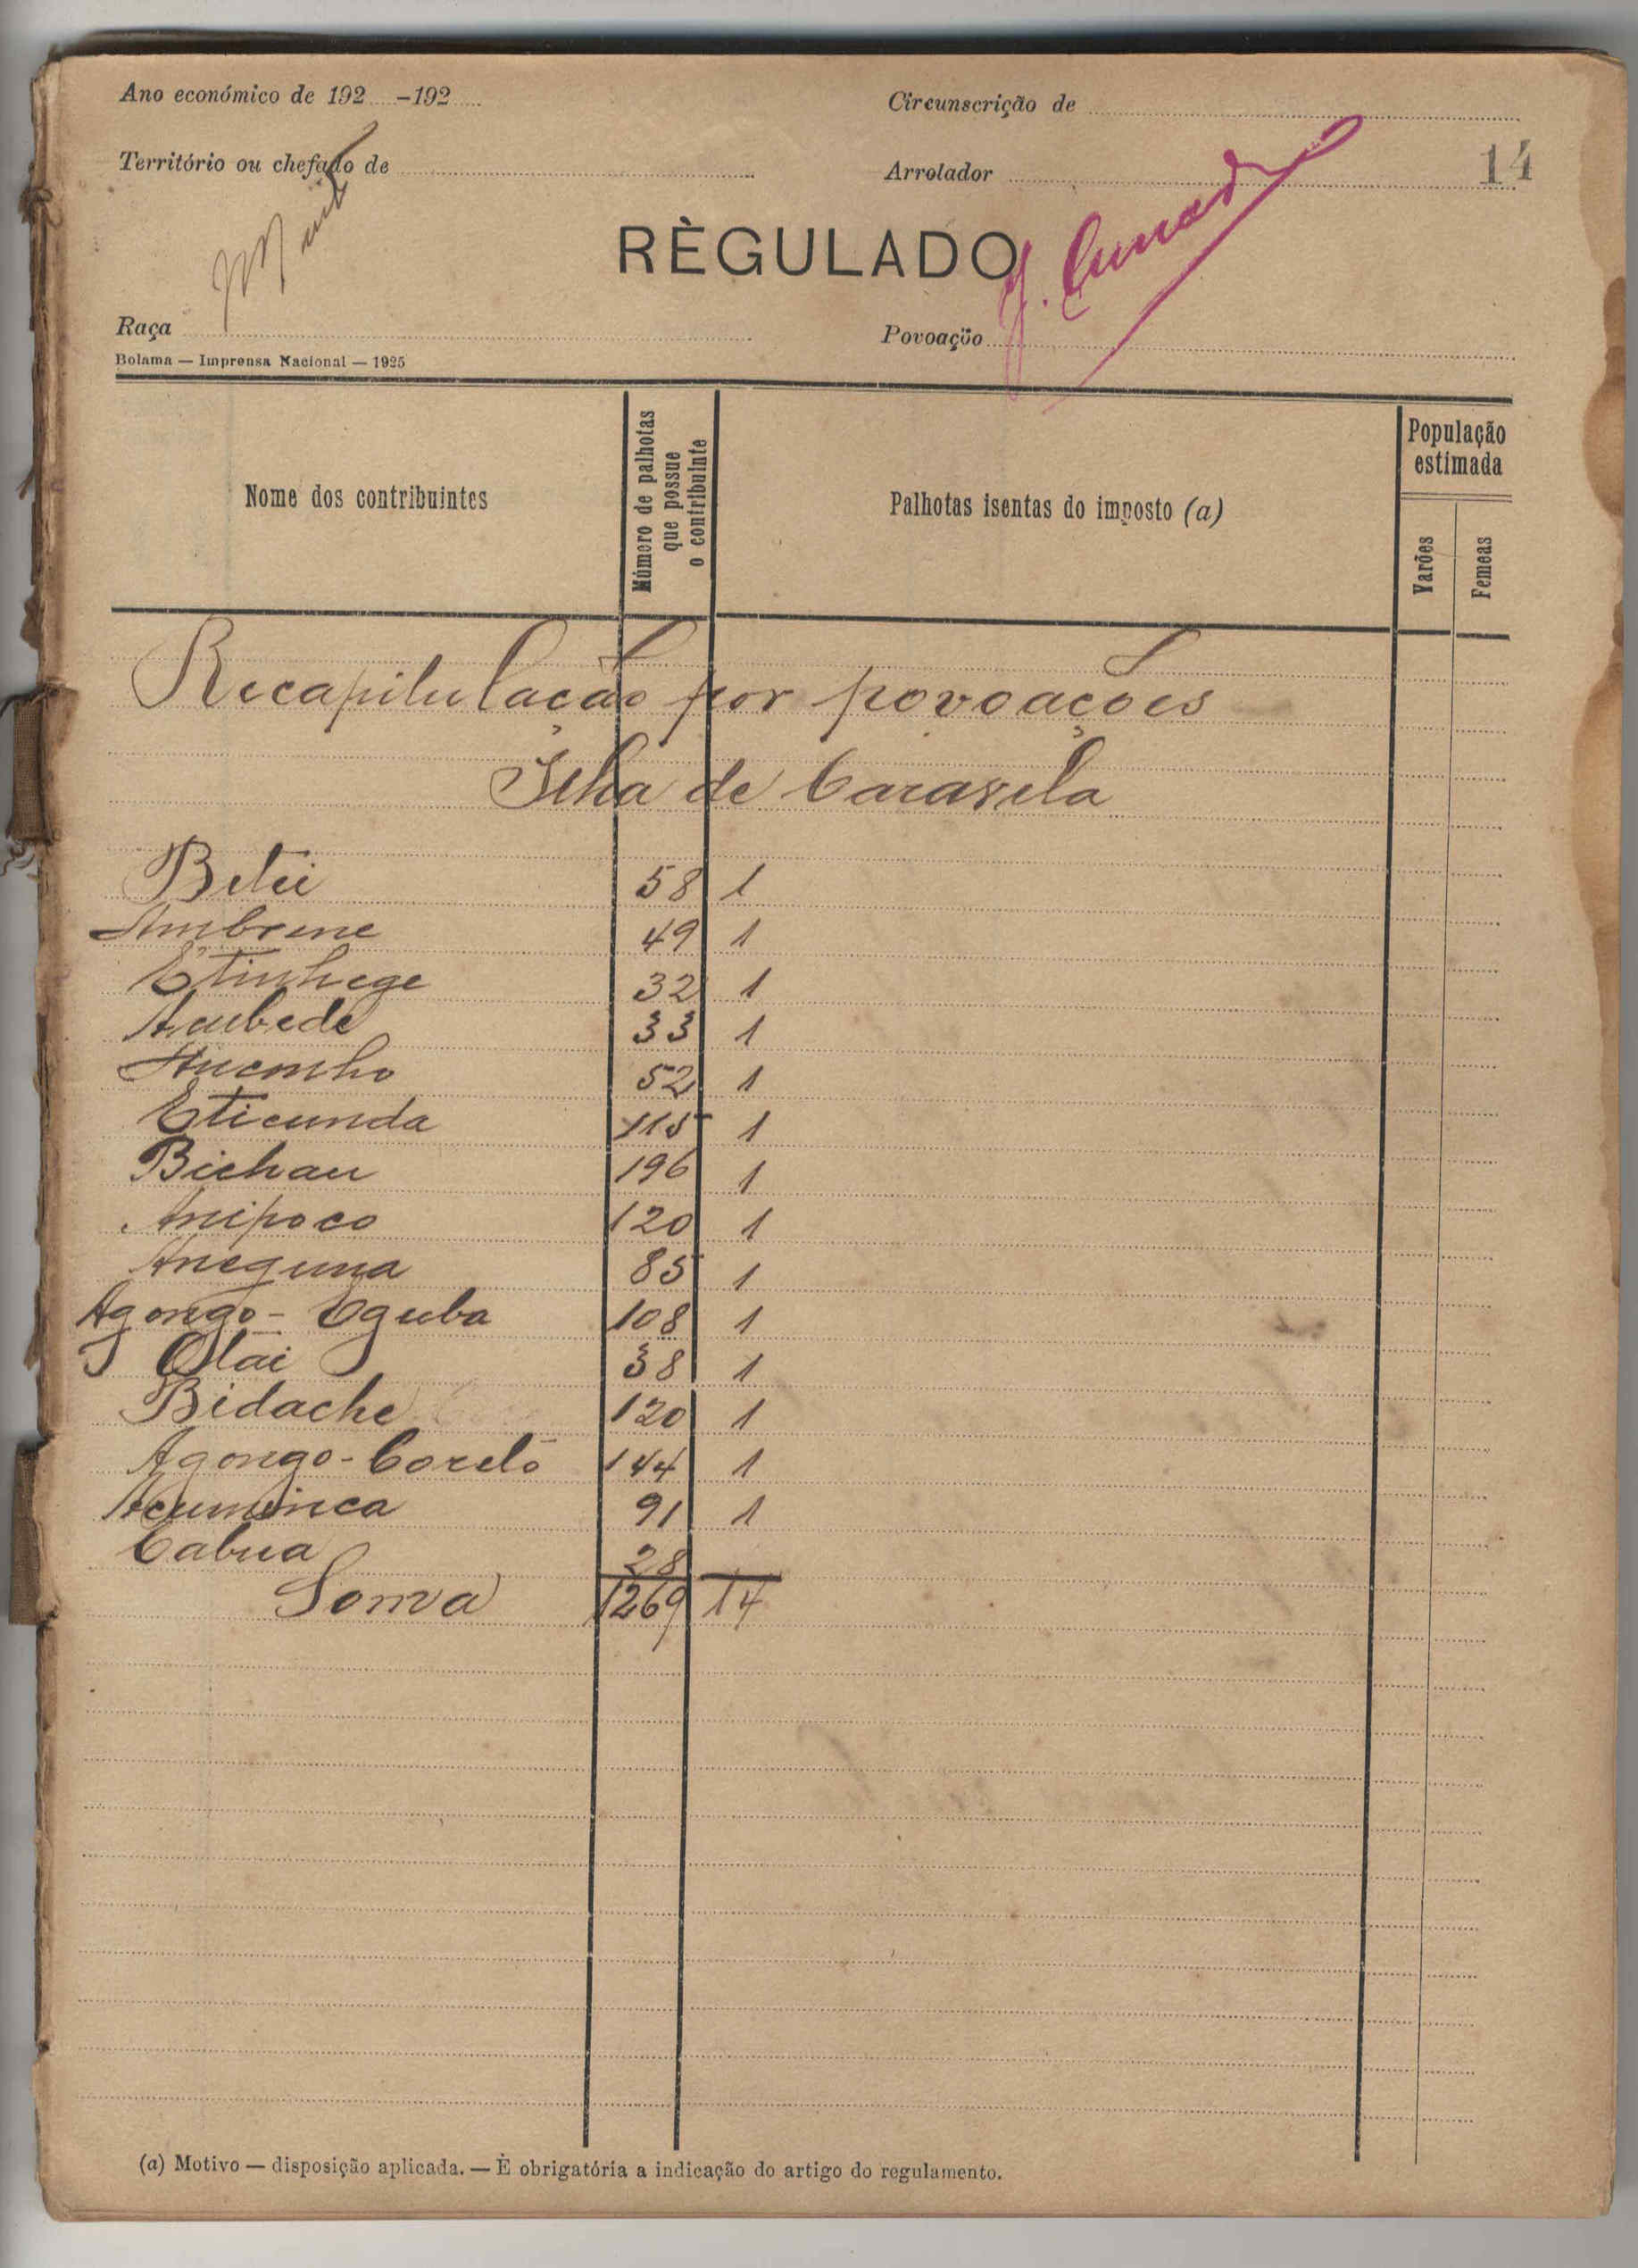 Ano económico de 192.....-192.....
Circunscrição de
Território ou chefado de
Arrolador
14
RÈGULADO
Raça
Povoação
Bolama — Imprensa Nacional — 1925
Nome dos contribuintes
Número de palhotas que possue o contribuinte
Palhotas isentas do imposto (a)
População estimada
Varões
Femeas
Recapitulação por povoações
Ilha de Caravela
Betei 58 1
Ambrene 49 1
Etinhege 32 1
Acubede 33 1
52 1
Eticunda 115 1
Bichau 196 1
Anipoco 120 1
Aneguna 85 1
Agongo - Eguba 108 1
Otai 38 1
Bidache 120 1
Agongo - Coreló 144 1
Acuminca 91 1
Cabua 28
Soma 1269 14
(a) Motivo — disposição aplicada. — È obrigatória a indicação do artigo do regulamento.